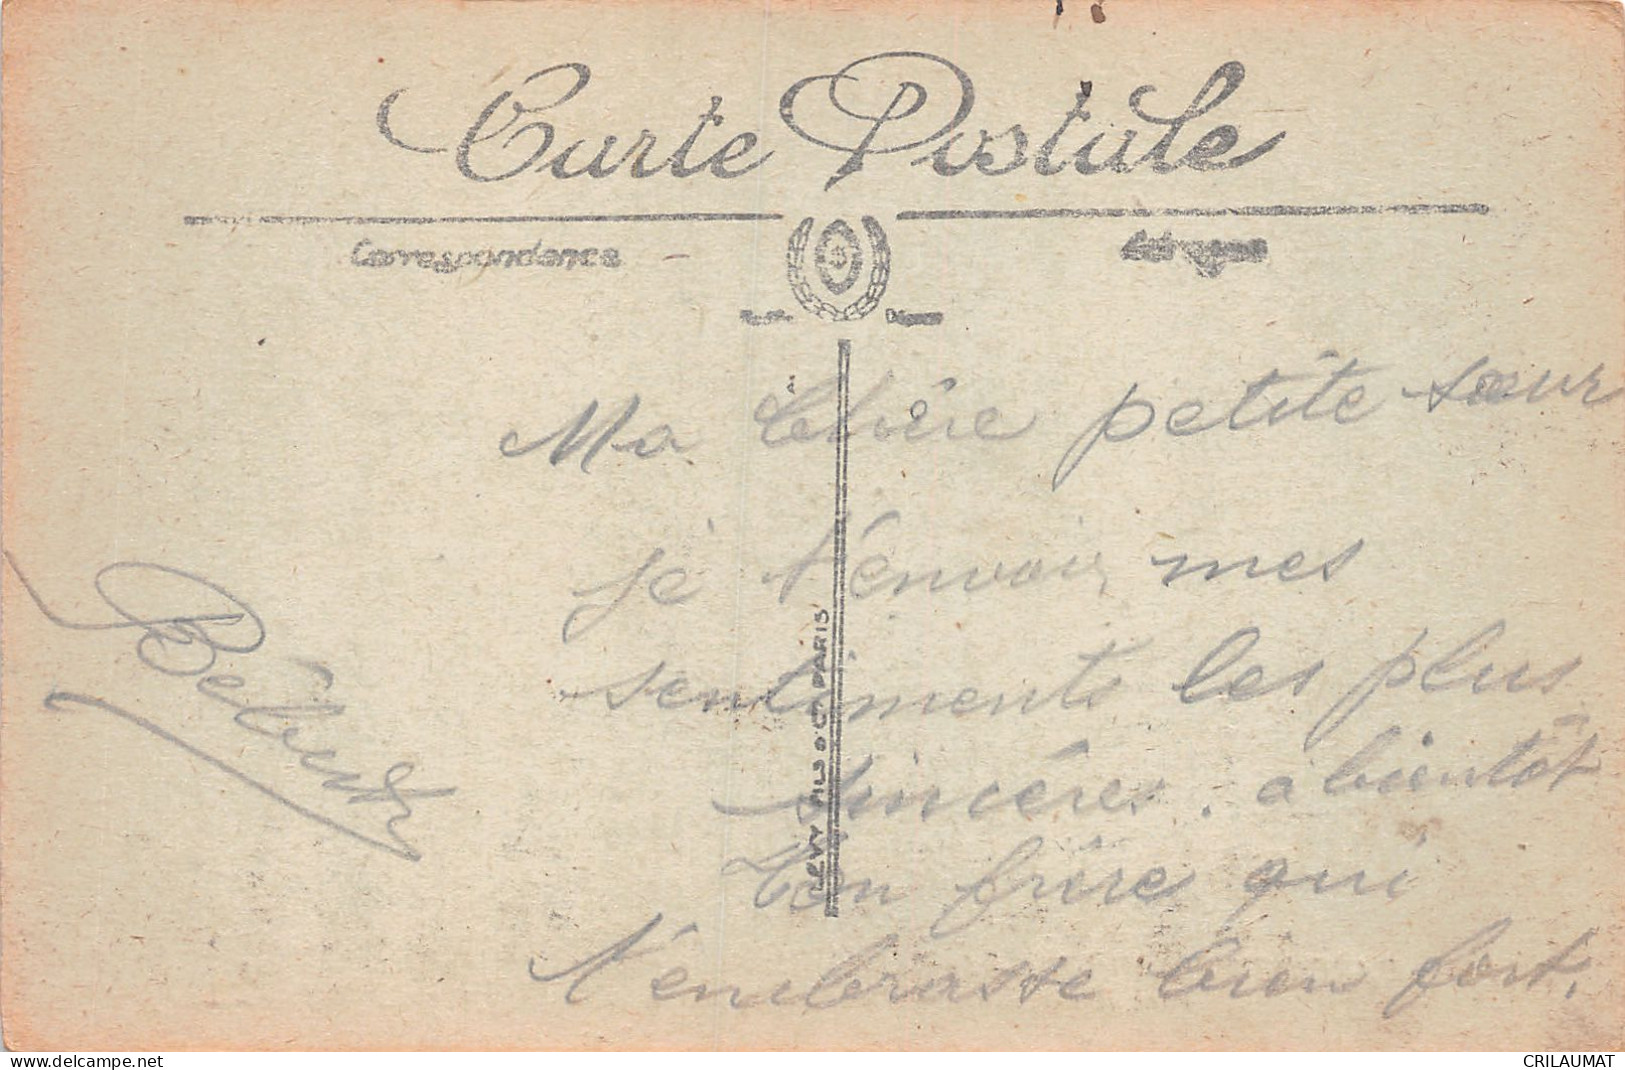 Carte Postale
Correspondance
Adresse
Ma Chère petite sœur
je t'envoie mes
sentiments les plus
sincères. a bientôt
Ton frère qui
t'embrasse bien fort.
LEVY FILS & Cie PARIS
www.delcampe.net
CRILAUMAT